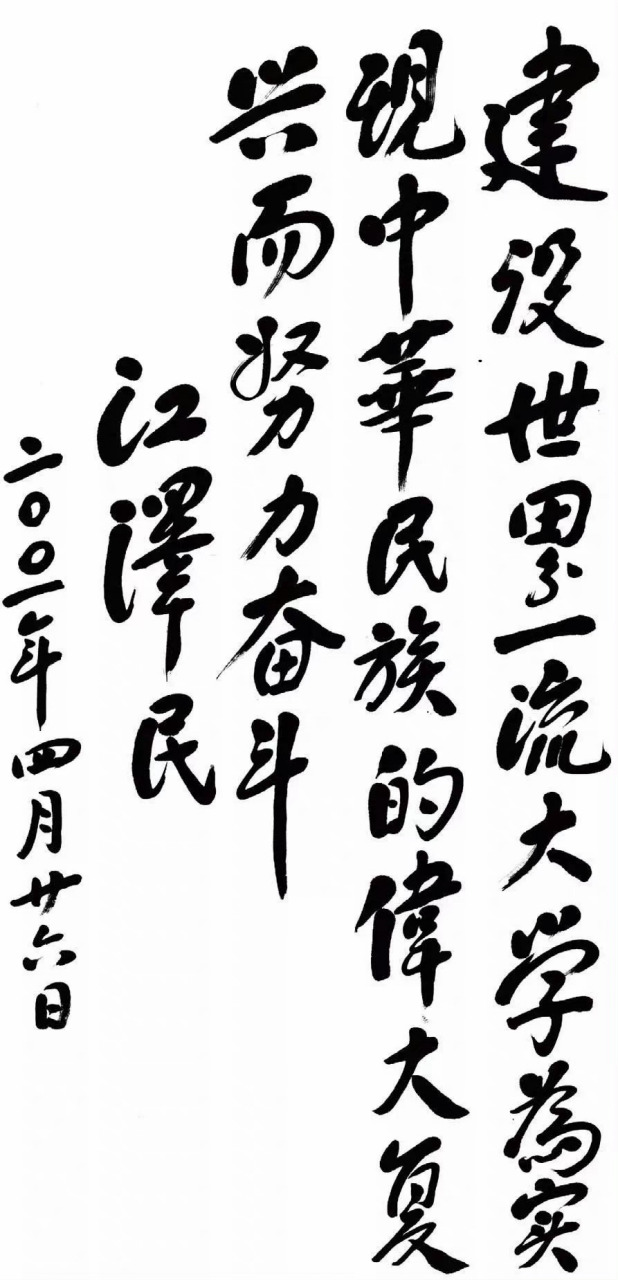 建设世界一流大学为实
现中華民族的偉大复
兴而努力奋斗
江澤民
二〇〇一年四月廿六日